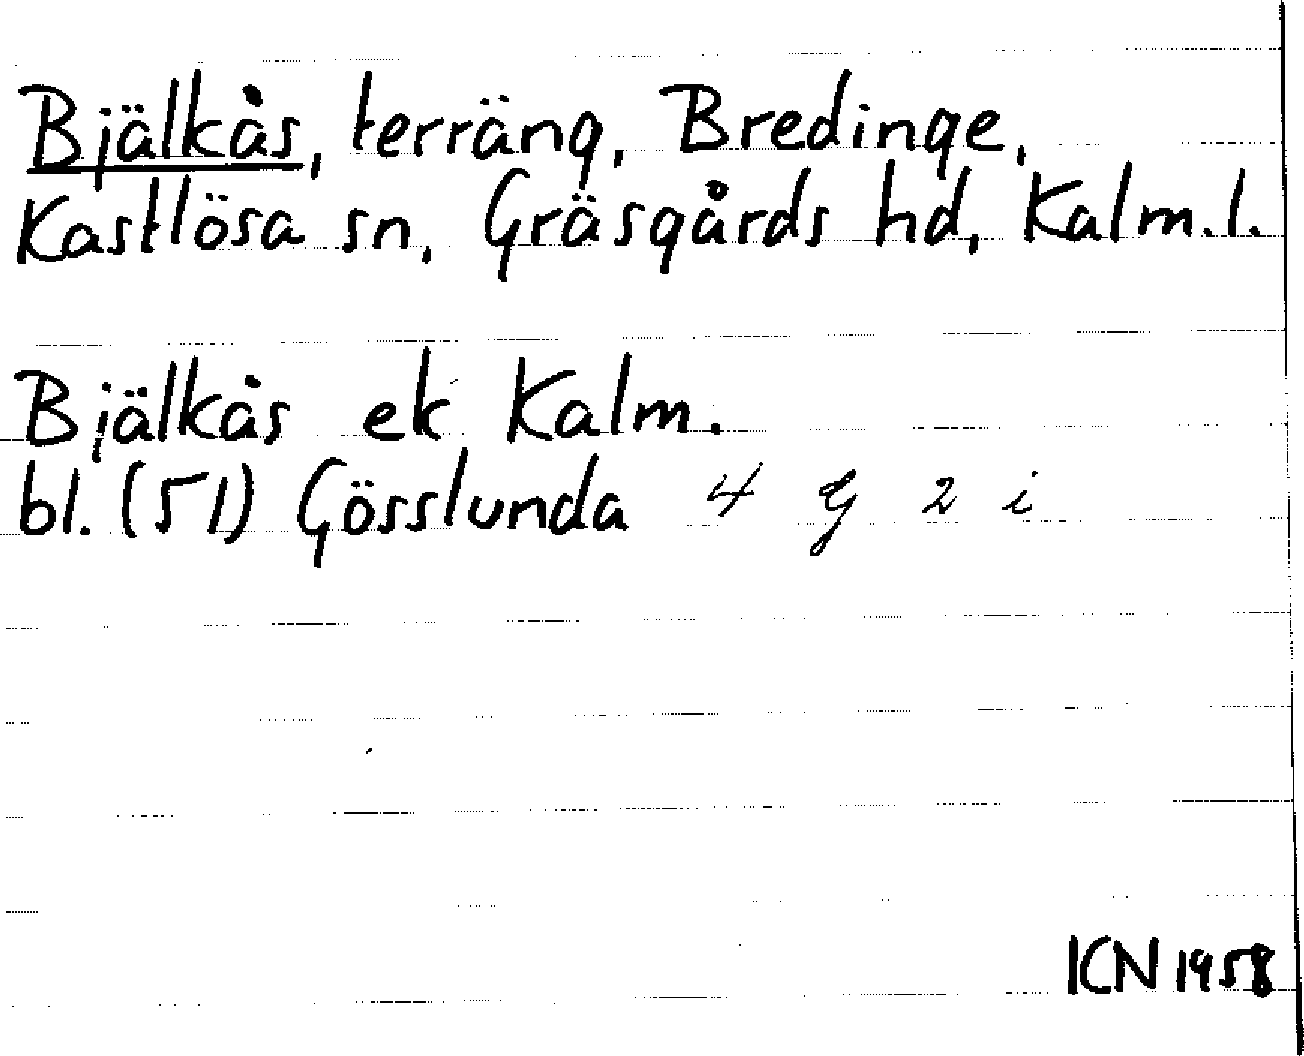 Bjälkås, terräng, Bredinge,
Kastlösa sn, Gräsgårds hd, Kalm. l.
Bjälkås ek Kalm.
bl. (51) Gösslunda 4 G 2 i
ICN 1958